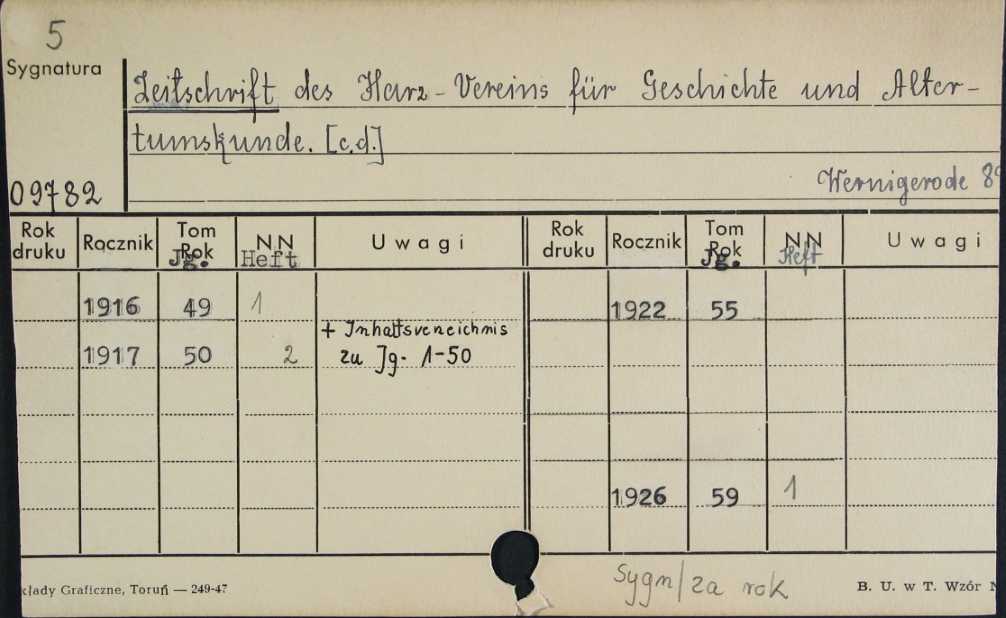 5
Sygnatura
Zeitschrift des Harz-Vereins für Geschichte und Alter-
tumskunde. [c.d.]
09782 Wernigerode 89
Rok druku Rocznik Tom Rok Jg. NN Heft Uwagi Rok druku Rocznik Tom Rok Jg. NN Heft Uwagi
1916 49 1 1922 55
+ Inhaltsverzeichnis
1917 50 2 zu Jg. 1-50
1926 59 1
Sygn/za rok
kłady Graficzne, Toruń — 249-47 B. U. w T. Wzór N